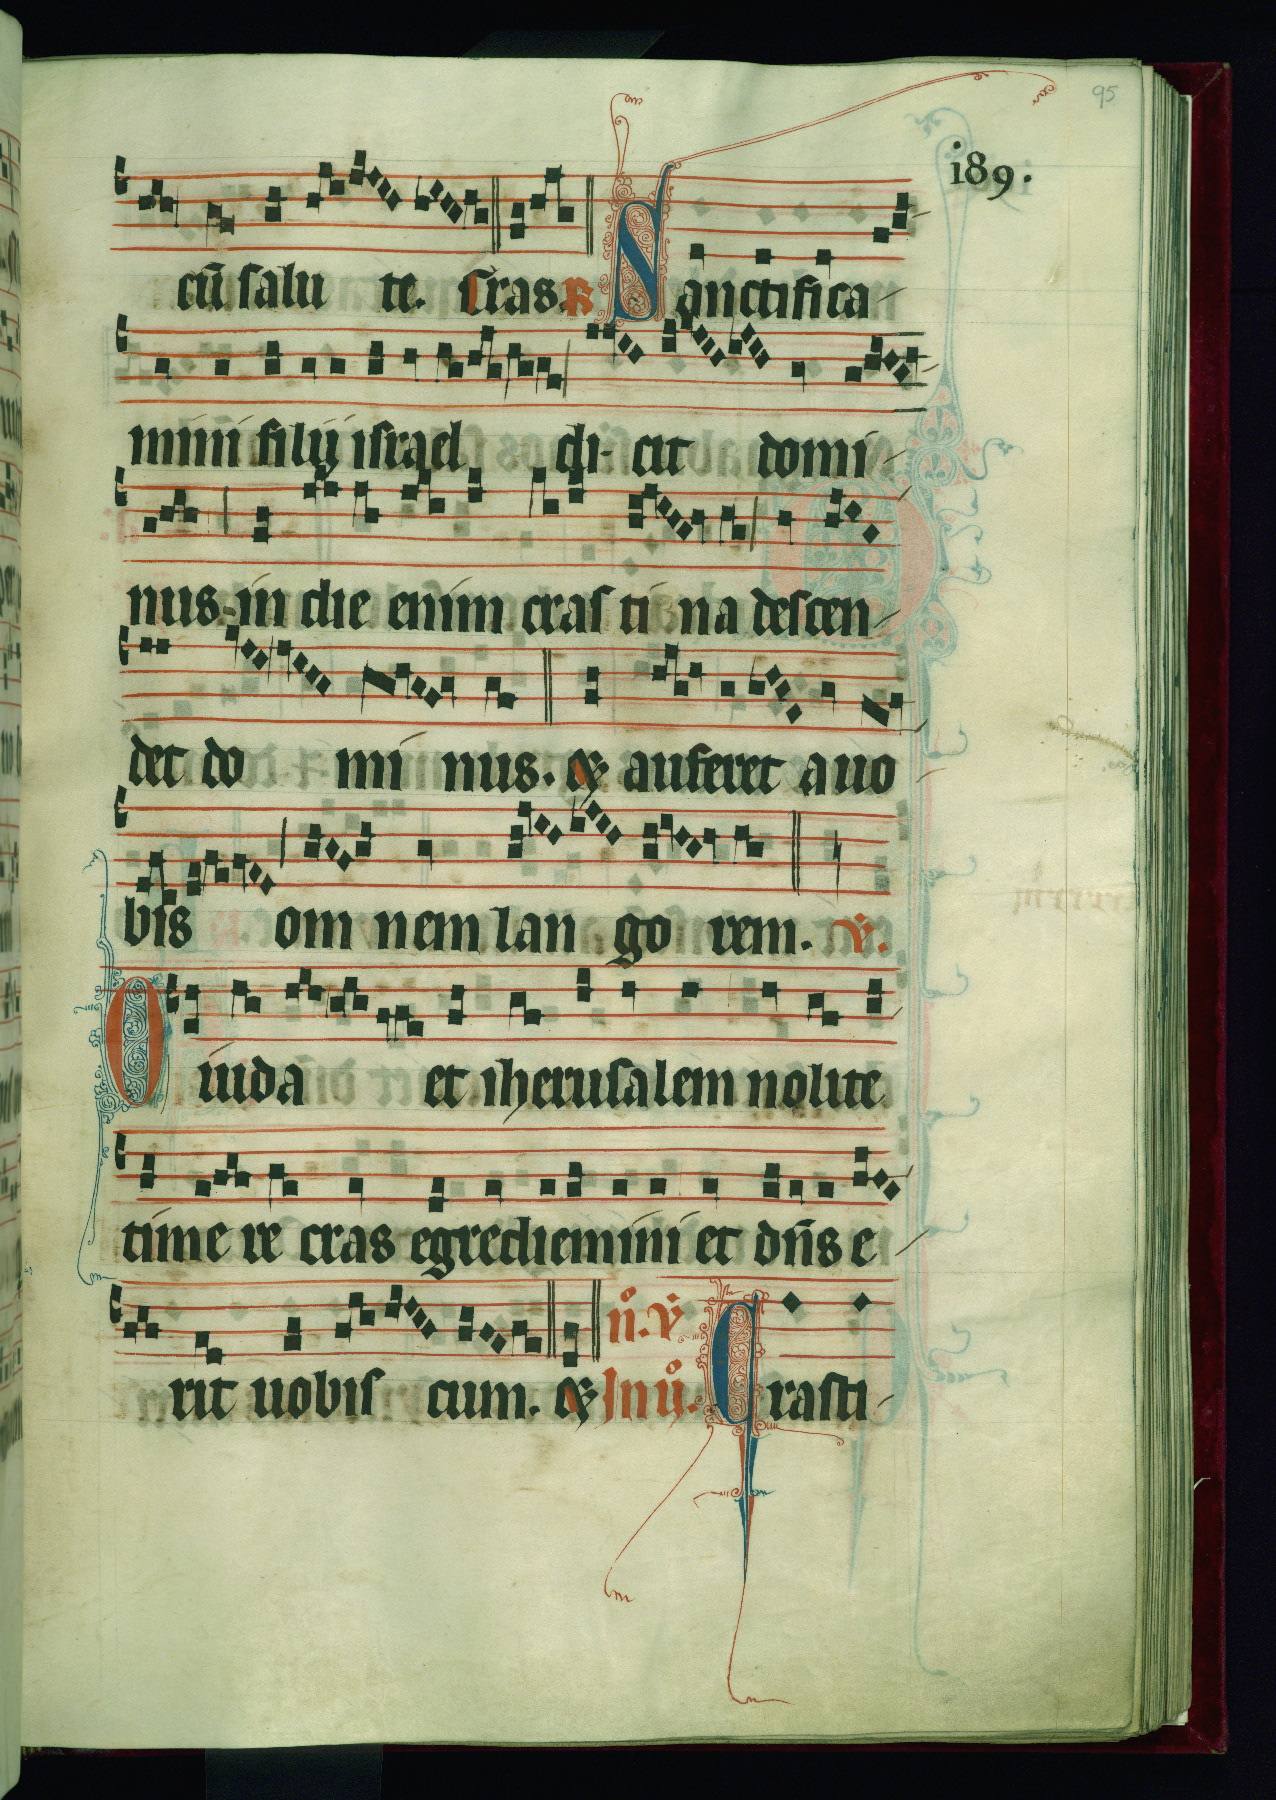 95
189.
cū salu te. Cras. R Sanctifica
mini filij israel di- cit domi
nus in die enim cras ti na descen
det do mi nus. & auferet a uo
bis om nem lan go rem. v.
O iuda et iherusalem nolite
time re cras egrediemini et dn̄s e
rit uobis cum. & In uͦ. Crasti
nͦ. v